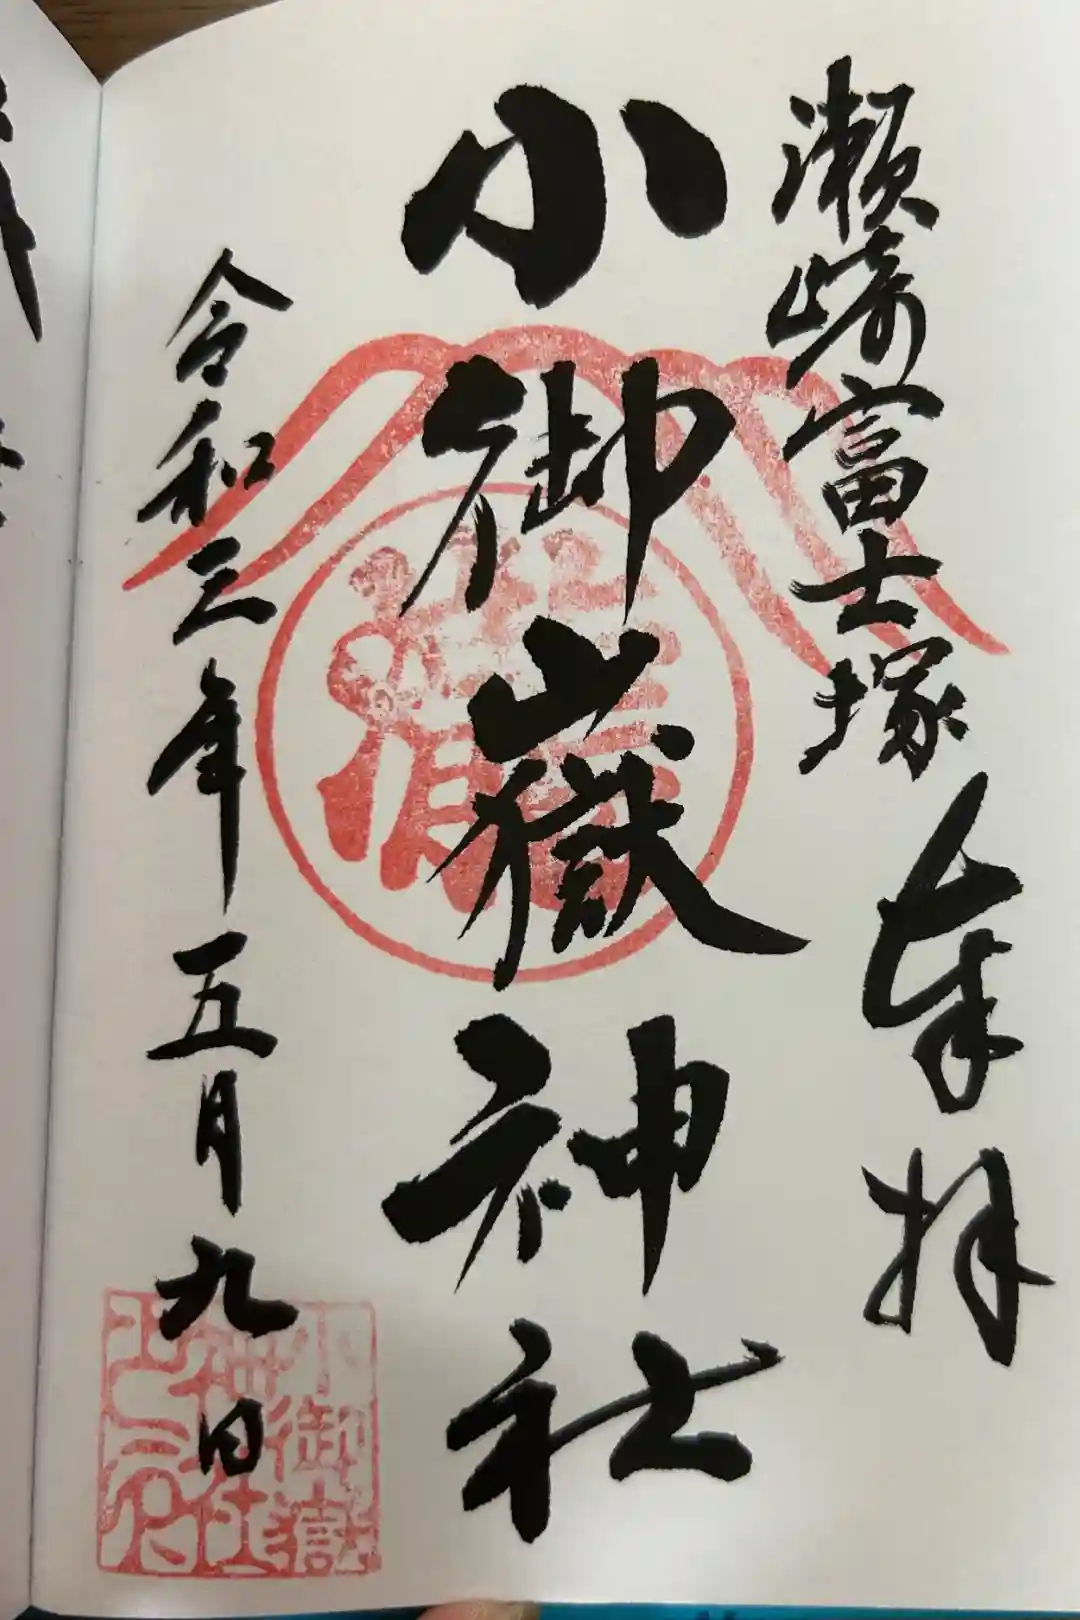 瀬崎富士塚
奉拝
小御嶽神社
令和三年五月九日
小御嶽
神社